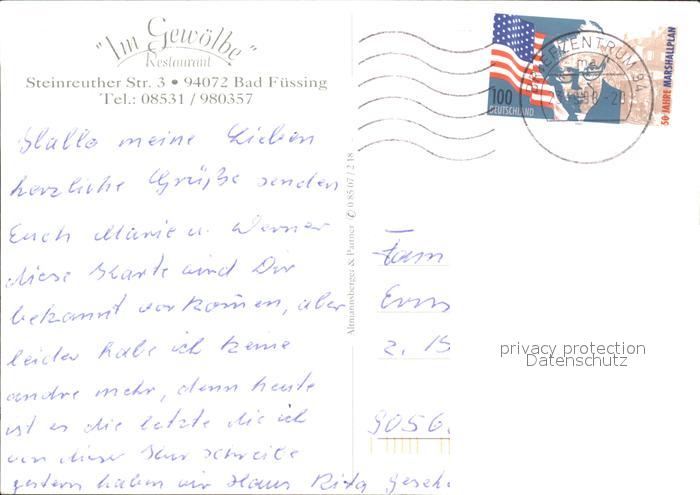 "Im Gewölbe"
Restaurant
Steinreuther Str. 3 • 94072 Bad Füssing
Tel.: 08531 / 980357
Hallo meine Lieben
herzliche Grüße senden
Euch Marie u. Werner
diese Karte wird Dir
bekannt vorkommen, aber
leider habe ich keine
andre mehr, denn heute
ist es die letzte die ich
von dieser Kur schreibe
gestern haben wir Haus Rita gesch
Altmannsberger & Partner ✆ 0 85 07 / 2 18
BRIEFZENTRUM 94
100
DEUTSCHLAND
50 JAHRE MARSHALLPLAN
Fam
z. 15
9056
privacy protection
Datenschutz